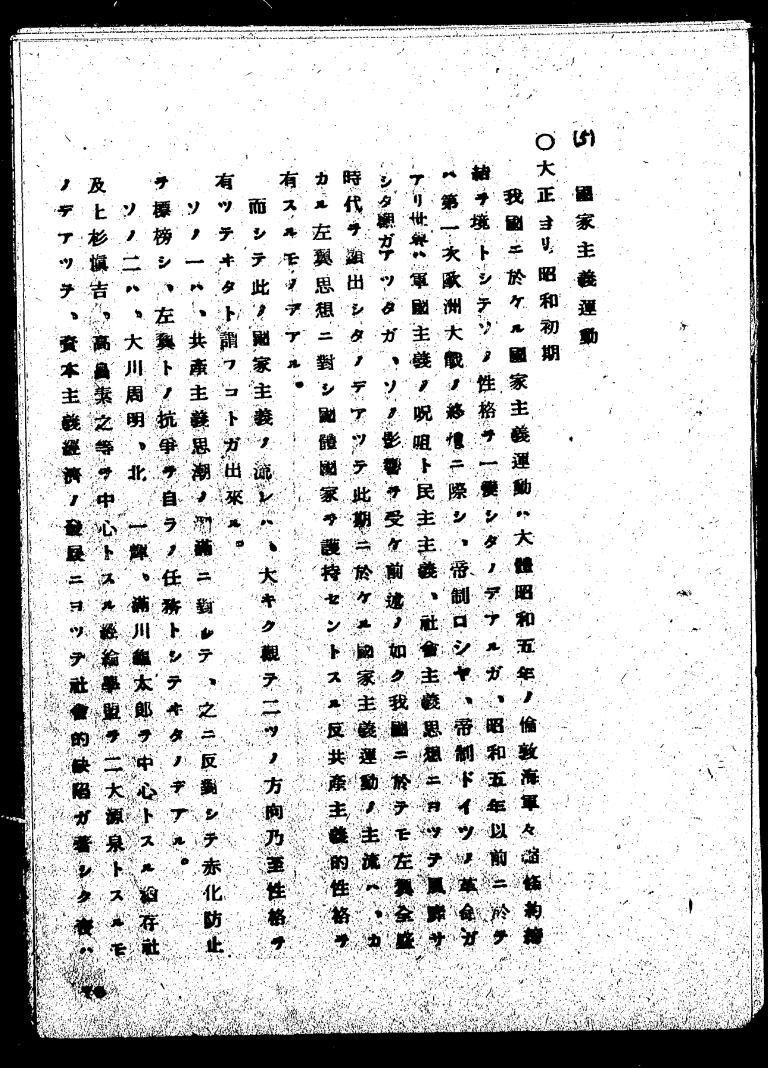 (5) 國家主義運動
〇大正ヨリ昭和初期
我國ニ於ケル國家主義運動ハ大體昭和五年ノ倫敦海軍々縮條約締
結ヲ境トシテソノ性格ヲ一變シタノデアルガ、昭和五年以前ニ於テ
ハ第一次歐洲大戰ノ終憶ニ際シ、帝制ロシヤ、帝制ドイツノ革命ガ
アリ世界ハ軍國主義ノ呪咀ト民主主義、社會主義思想ニヨツテ風靡サ
シタ觀ガアツタガ、ソノ影響ヲ受ケ前述ノ如ク我國ニ於テモ左翼全盛
時代ヲ顯出シタノデアツテ此期ニ於ケル國家主義運動ノ主流ハ、カ
カル左翼思想ニ對シ國體國家ヲ護持セントスル反共產主義的性格ヲ
有スルモノデアル。
而シテ此ノ國家主義ノ流レハ、大キク觀テ二ツノ方向乃至性格ヲ
有ツテキタト謂フコトガ出來ル。
ソノ一ハ、共產主義思潮ノ滿ニ對シテ、之ニ反對シテ赤化防止
ヲ標榜シ、左翼トノ抗爭ヲ自ラノ任務トシテキタノデアル。
ソノ二ハ、大川周明、北一輝、滿川龜太郎ヲ中心トスル猶存社
及上杉愼吉、高畠素之等ヲ中心トスル經綸學盟ヲ二大源泉トスルモ
ノデアツテ、資本主義經濟ノ發展ニヨツテ社會的缺陷ガ著シク表ハ